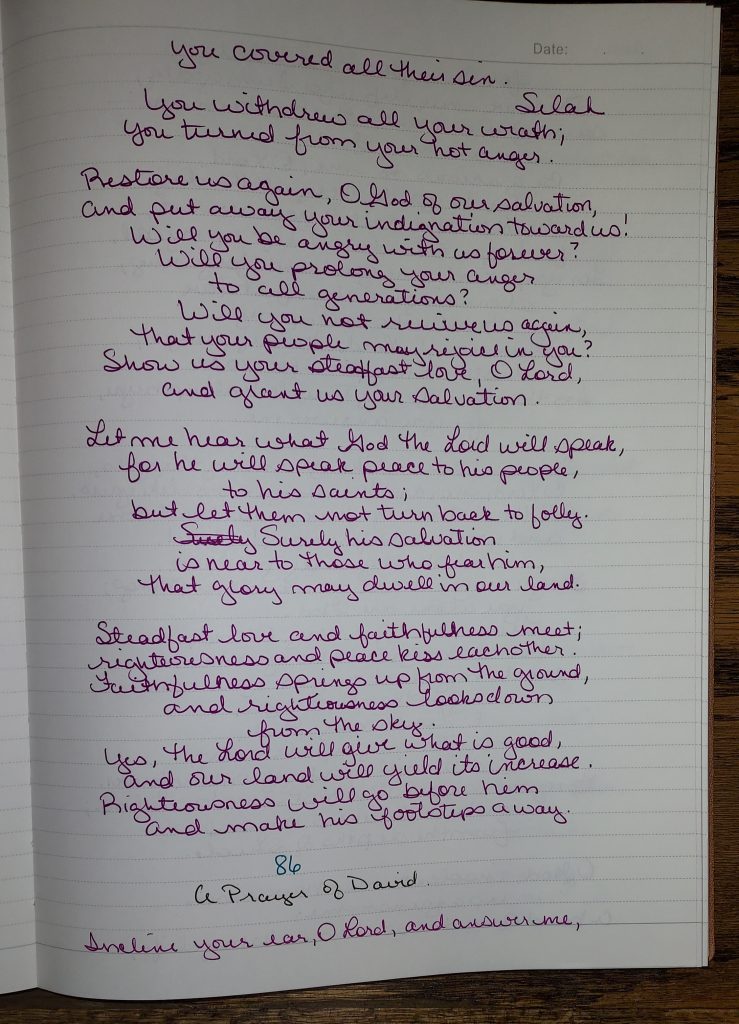 Date: . .
you covered all their sin.
Selah
You withdrew all your wrath;
you turned from your hot anger.
Restore us again, O God of our salvation,
and put away your indignation toward us!
Will you be angry with us forever?
Will you prolong your anger
to all generations?
Will you not revive us again,
that your people may rejoice in you?
Show us your steadfast love, O Lord,
and grant us your salvation.
Let me hear what God the Lord will speak,
for he will speak peace to his people,
to his saints;
but let them not turn back to folly.
Surely Surely his salvation
is near to those who fear him,
that glory may dwell in our land.
Steadfast love and faithfulness meet;
righteousness and peace kiss eachother.
Faithfulness springs up from the ground,
and righteousness looks down
from the sky.
Yes, the Lord will give what is good,
and our land will yield its increase.
Righteousness will go before him
and make his footsteps away.
86
A Prayer of David.
Incline your ear, O Lord, and answer me,